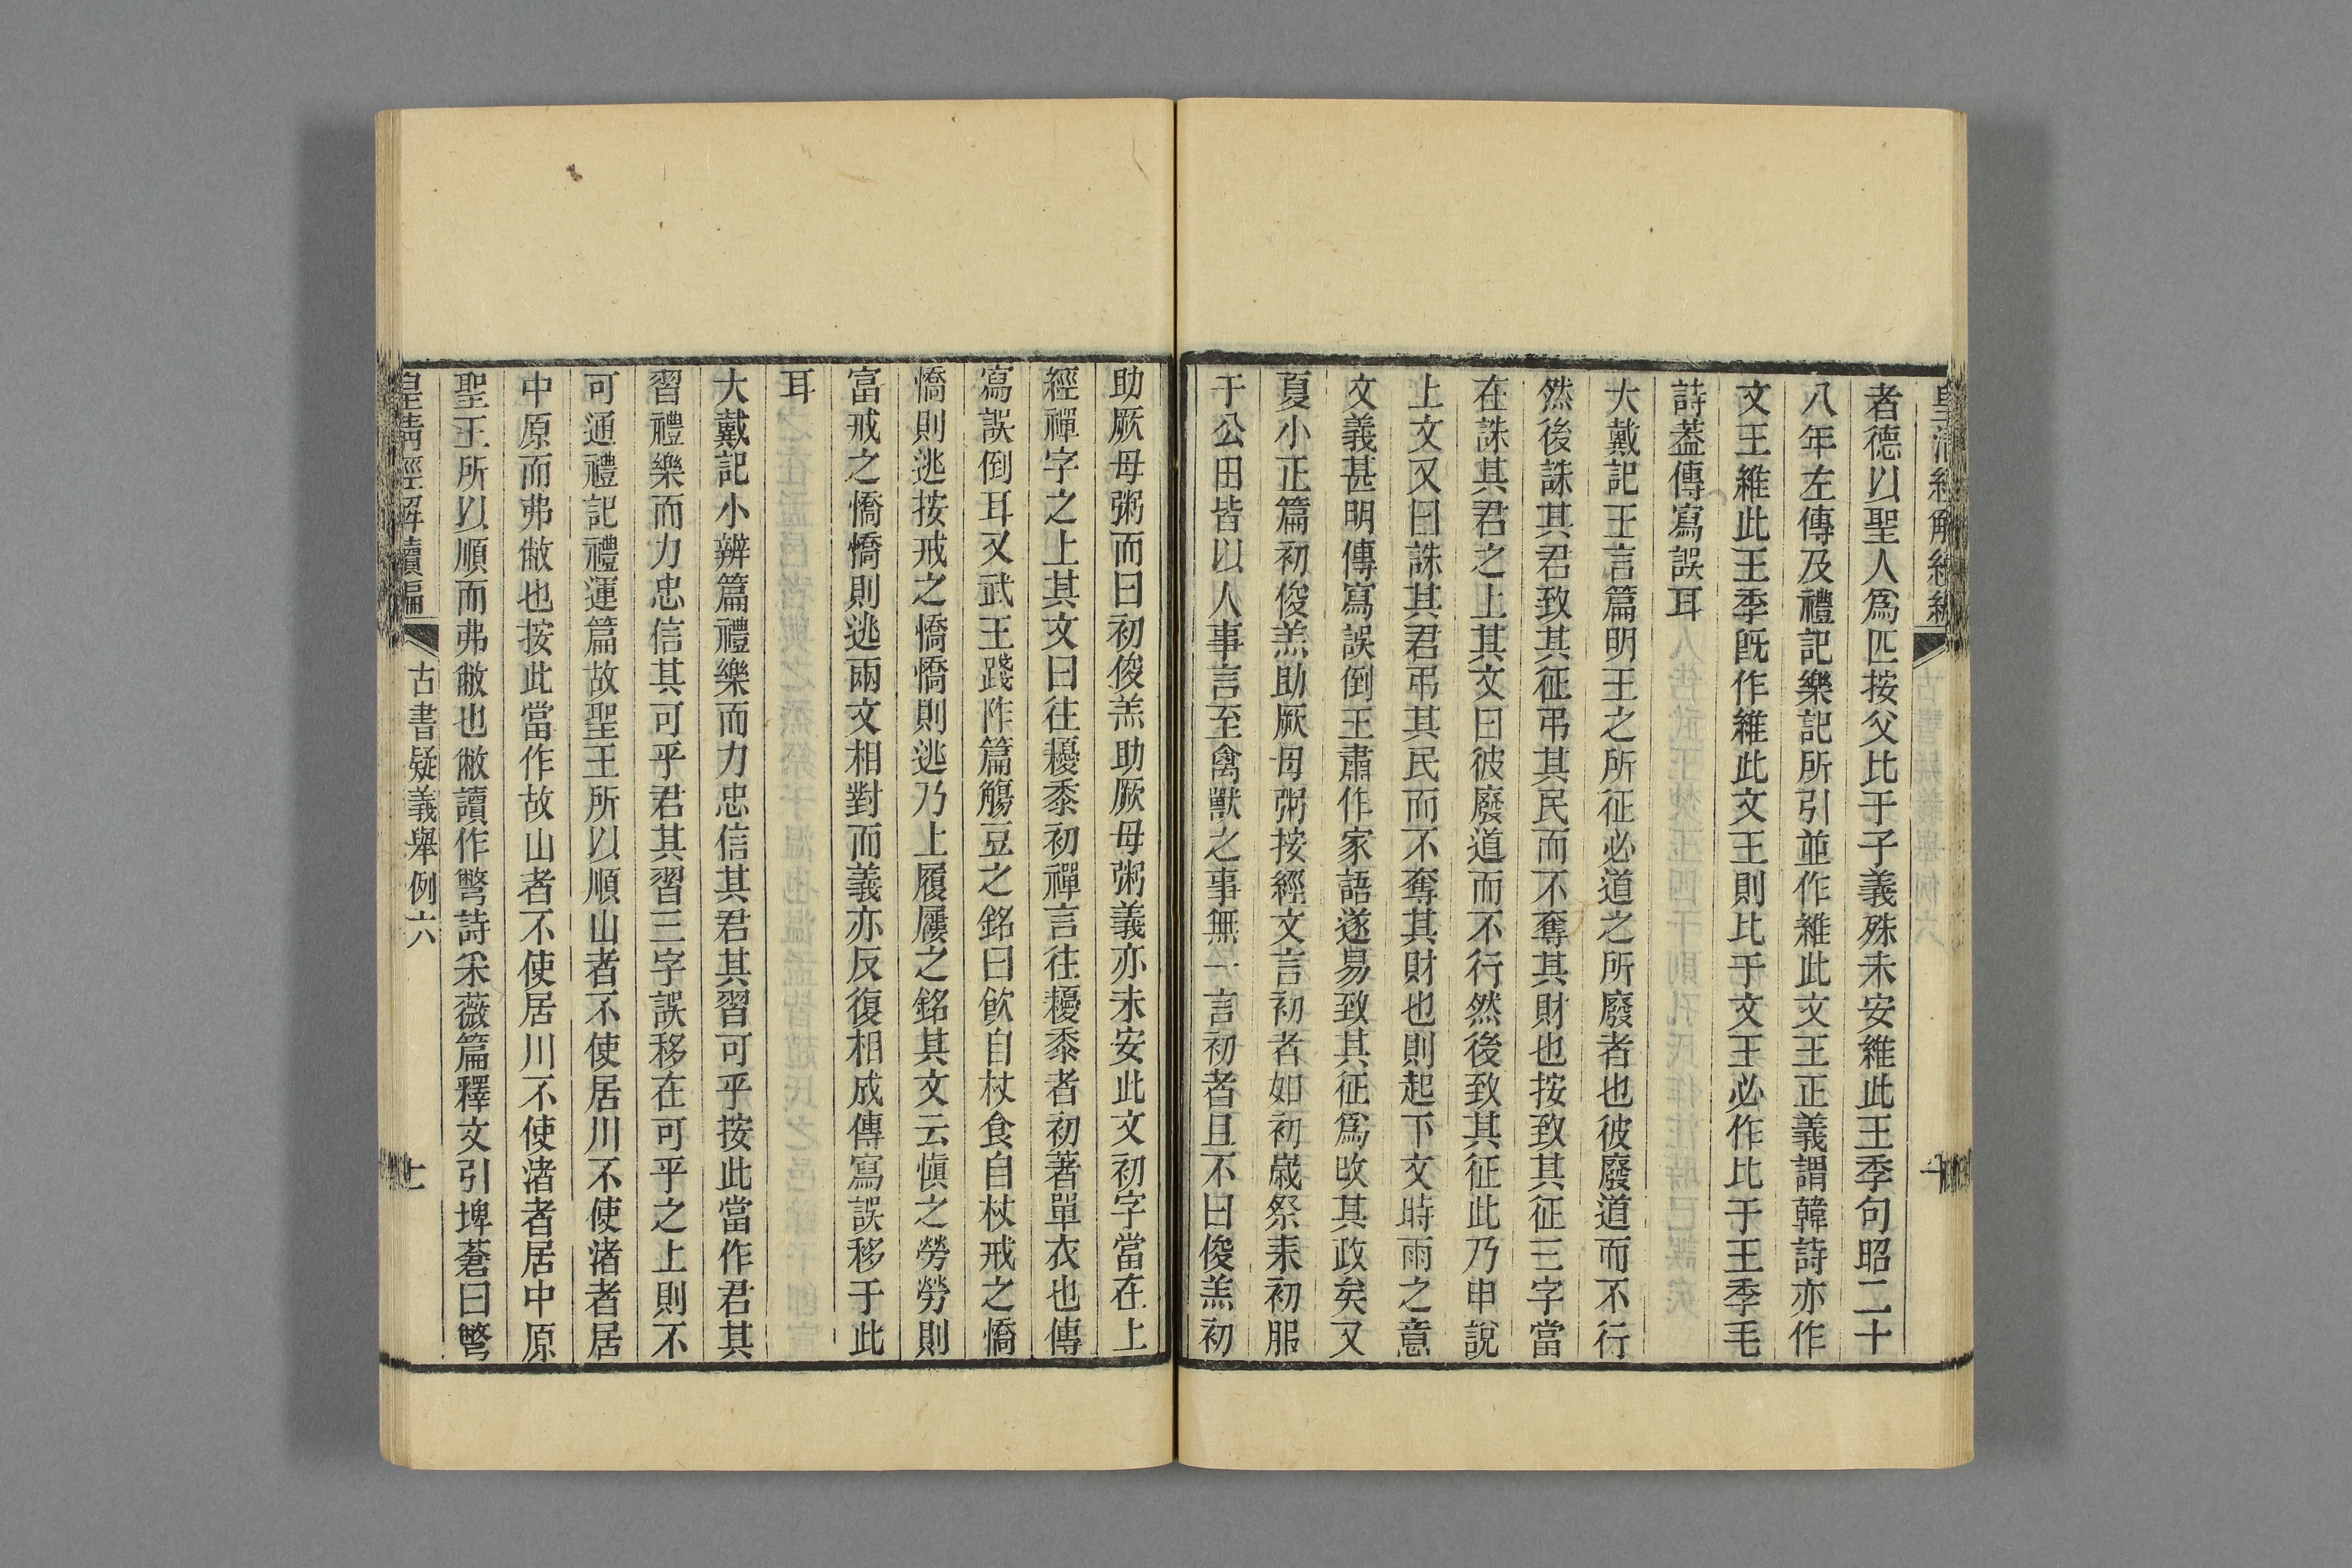 者德以聖人爲匹按父比于子義殊未安維此王季句昭二十
八年左傳及禮記樂記所引並作維此文王正義謂韓詩亦作
文王維此王季既作維此文王則比于文王必作比于王季毛
詩葢傳寫誤耳
大戴記王言篇明王之所征必道之所廢者也彼廢道而不行
然後誅其君致其征弔其民而不奪其財也按致其征三字當
在誅其君之上其文曰彼廢道而不行然後致其征此乃申說
上文又曰誅其君弔其民而不奪其財也則起下文時雨之意
文義甚明傳寫誤倒王肅作家語遂易致其征爲改其政矣又
夏小正篇初俊羔助厥母粥按經文言初者如初歲祭耒初服
于公田皆以人事言至禽獸之事無一言初者且不曰俊羔初
助厥母粥而曰初俊羔助厥母粥義亦未安此文初字當在上
經禪字之上其文曰往耰黍初禪言往耰黍者初著單衣也傳
寫誤倒耳又武王踐阼篇觴豆之銘曰飲自杖食自杖戒之憍
憍則逃按戒之憍憍則逃乃上履屨之銘其文云愼之勞勞則
富戒之憍憍則逃兩文相對而義亦反復相成傳寫誤移于此
耳
大戴記小辨篇禮樂而力忠信其君其習可乎按此當作君其
習禮樂而力忠信其可乎君其習三字誤移在可乎之上則不
可通禮記禮運篇故聖王所以順山者不使居川不使渚者居
中原而弗敝也按此當作故山者不使居川不使渚者居中原
聖王所以順而弗敝也敝讀作彆詩采薇篇釋文引埤蒼曰彆
皇淸經解續編 古書疑義舉例六 七